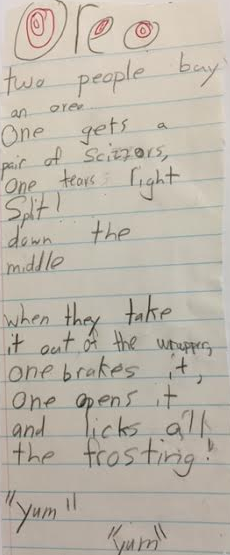 Oreo
two people bay
an oreo.
One gets a
pair of Scizzors,
one tears right
Split!
down the
middle
when they take
it out of the wrapper,
one brakes it,
one opens it
and licks all
the frosting!
"yum"
"yum"